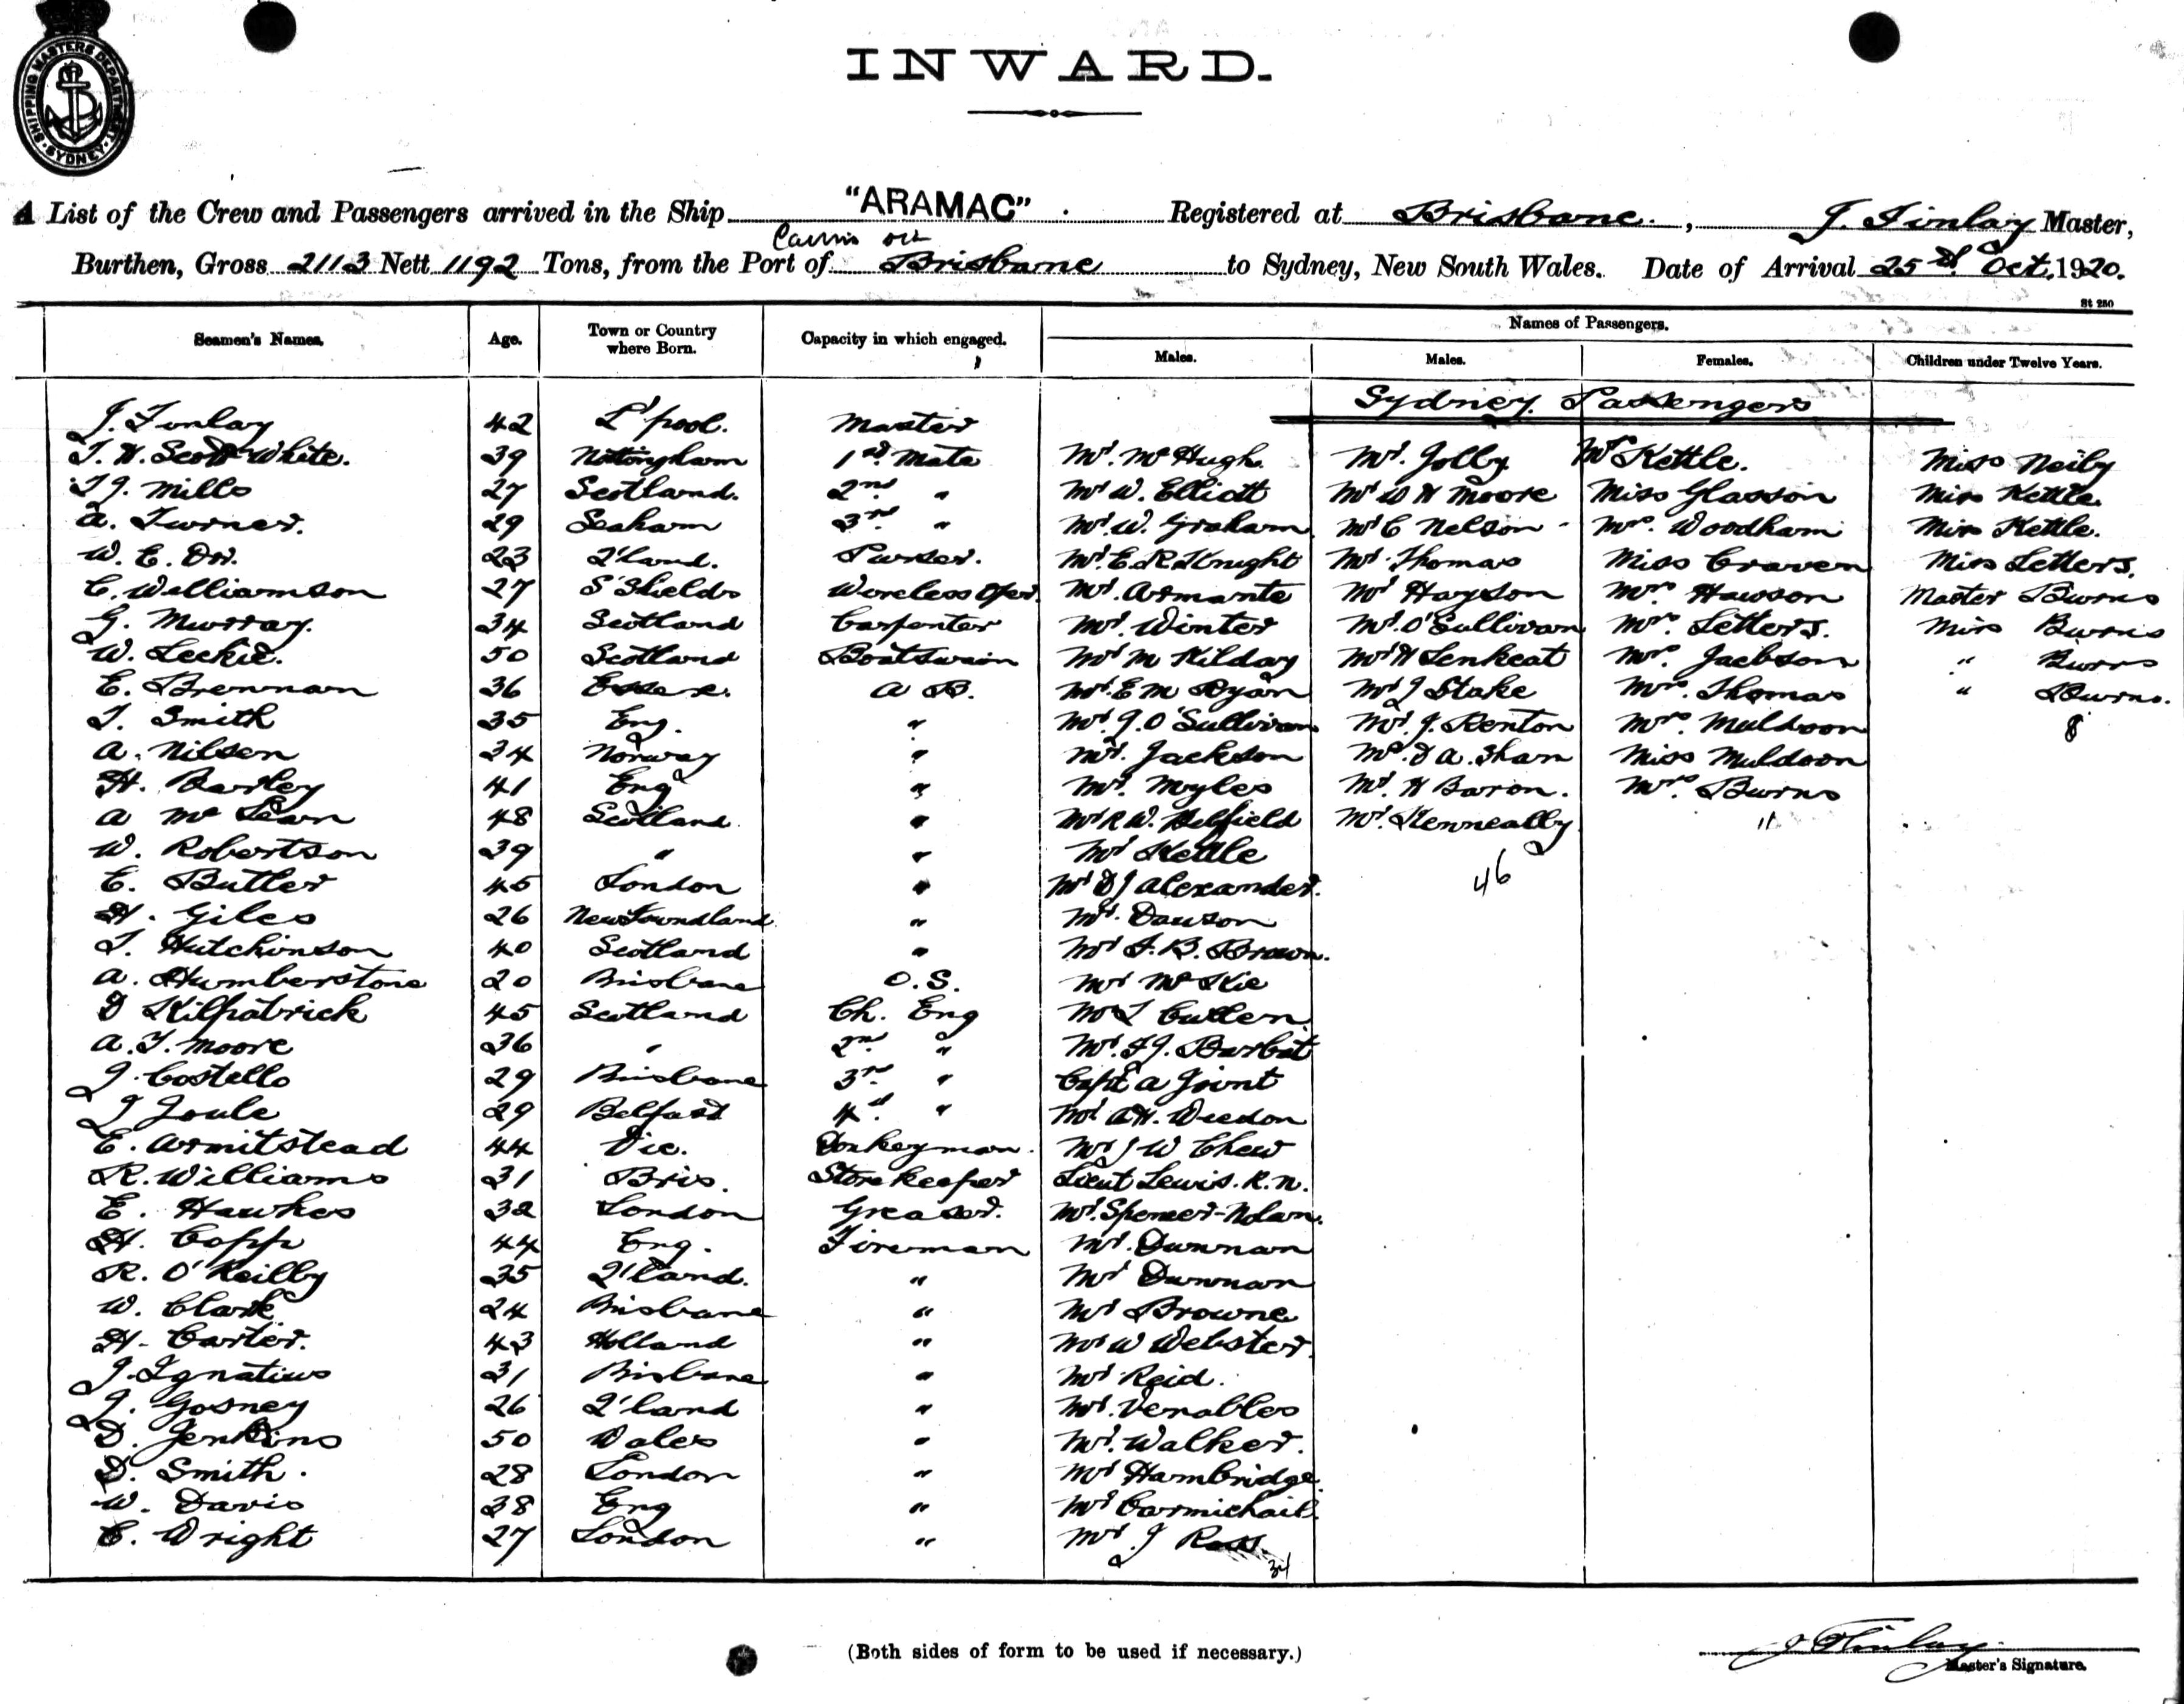 SHIPPING MASTERS DEPARTMENT
SYDNEY
INWARD.
A List of the Crew and Passengers arrived in the Ship "ARAMAC" Registered at Brisbane, J. Finlay Master,
Cairns
Burthen, Gross 2113 Nett 1192 Tons, from the Port of Brisbane to Sydney, New South Wales. Date of Arrival 25th Oct. 1920.
St 250
Seamen's Names. Age. Town or Country where Born. Capacity in which engaged. Names of Passengers.
Males. Males. Females. Children under Twelve Years.
Sydney Passengers
J. Finlay 42 L'pool. Master
T. H. Scott White. 39 Nottingham 1st Mate Mr. McHugh. Mr. Jolly Mrs Kettle. Miss Neily
T J. Mills 27 Scotland. 2nd " Mr W. Elliott Mr W H Moore Miss Glasson Miss Kettle.
A. Turner. 29 Seaham 3rd " Mr. W. Graham Mr C Nelson Mrs. Woodham Miss Kettle.
W. E. Orr. 23 Q'land. Purser. Mr. E. R. Knight Mr. Thomas Miss Craven Miss Letters.
C. Williamson 27 S'Shields Wireless Oper. Mr. Armante Mr Hayson Mrs. Hawson Master Burns
G. Murray. 34 Scotland Carpenter Mr. Winter Mr. O'Sullivan Mrs. Letters. Miss Burns
W. Leckie. 50 Scotland Boatswain Mr M Kilday Mr H Lenkeat Mrs. Jackson " Burns
E. Brennan 36 Essex. A B. Mr. E M Ryan Mr J Stake Mrs. Thomas " Burns.
T. Smith 35 Eng. " Mr. J. O'Sullivan Mr. J. Renton Mrs. Muldoon 8
A. Nilsen 34 Norway " Mr. Jackson Mr. D A. Shan Miss Muldoon
H. Barley 41 Eng " Mr. Myles Mr. H Baron. Mrs. Burns
A McLean 48 Scotland. " Mr R W. Belfield Mr. Kenneally 11
W. Robertson 39 " " Mr Kettle
E. Butler 45 London " Mr D J Alexander. 46
H. Giles 26 Newfoundland " Mr. Dawson
T. Hutchinson 40 Scotland " Mr F. B. Brown.
A. Humberstone 20 Brisbane O. S. Mr McKie
D Kilpatrick 45 Scotland Ch. Eng Mr L Cullen
A. T. Moore 36 " 2nd " Mr. F J. Barbat
J. Costello 29 Brisbane 3rd " Capt A Joint
J Joule 29 Belfast 4th " Mr. A H. Weedon
E. Armitstead 44 Vic. Donkeyman. Mr J W Chew
R. Williams 31 Bris. Storekeeper Lieut Lewis. R. N.
E. Hawkes 32 London Greaser. Mr. Spencer-Nolan.
H. Copp 44 Eng. Fireman Mr. Dunnan
R. O'Reilly 35 Q'land. " Mr Dunnan
W. Clark 24 Brisbane " Mr Browne
H. Carter. 43 Holland " Mr W Webster.
J. Ignatius 31 Brisbane " Mr Reid.
J. Gosney 26 Q'land " Mr. Venables
D. Jenkins 50 Wales " Mr. Walker.
D. Smith. 28 London " Mr Hambridge.
W. Davis 38 Eng " Mr Carmichael.
C. Wright 27 London " Mr. J Ross.
34
(Both sides of form to be used if necessary.)
J Finlay
Master's Signature.